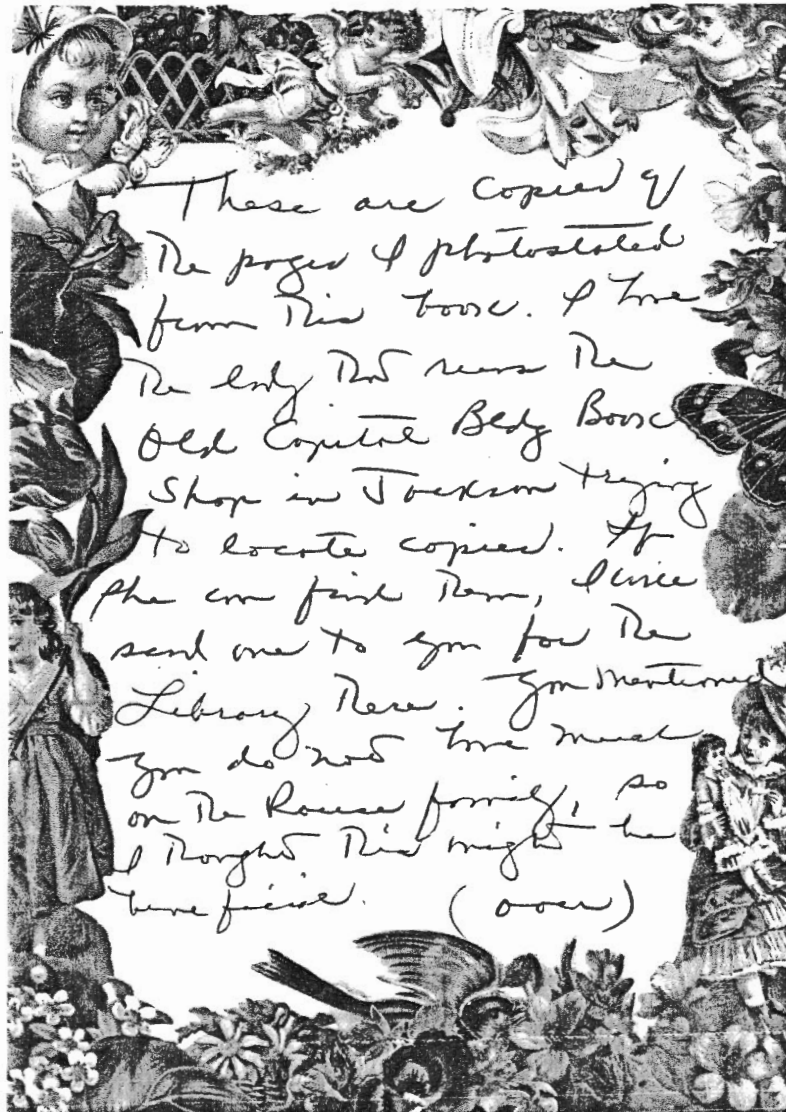 These are copies of
the pages I photostated
from this book. I have
the lady that runs the
Old Capitol Bldg Book
Shop in Jackson trying
to locate copies. If
she can find them, I will
send one to you for the
Library there. You mentioned
you do not have much
on the Rouse family, so
I thought this might be
beneficial. (over)